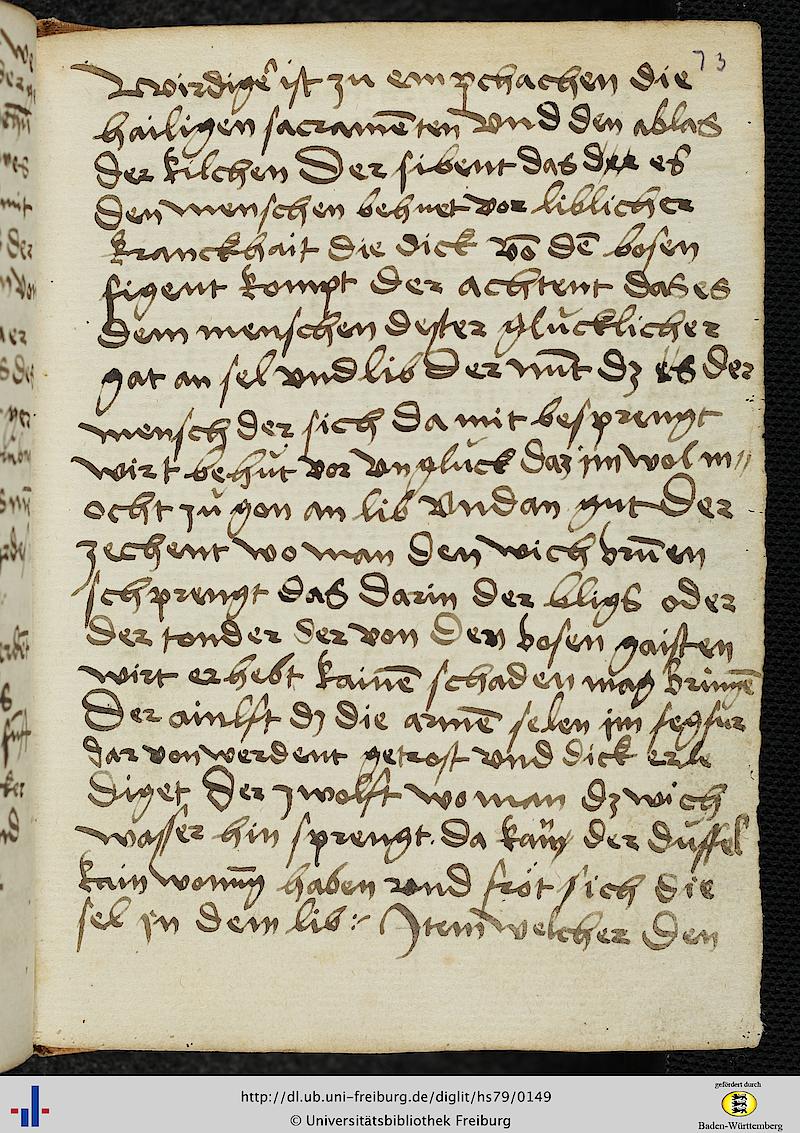 73
Wirdigē ist zu empchachen die
hailigen sacramēten vnd den ablas
der kilchen Der sibent das der es
den menschen behuet vor liblicher
kranckhait die dick vō dē bosen
figent kompt der achtent das es
dem menschen dester glücklicher
gat an sel vnd lib Der nūt dz es der
mensch der sich da mit besprengt
wirt behüt vor vnglück daz im wol m〃
ocht zů gon an lib vnd an gut Der
zechent wo man den wich brūen
schprengt das darin der bligs oder
der tonder der von den bosen gaisten
wirt erhebt kainē schaden mag bringē
Der ainlft dz die armē selen im fegfur
dar von werdent getrost vnd dick erle
diget Der zwolft wo man dz wich
wasser hin sprengt. da kan der düffel
kain wonūg haben vnd fröt sich die
sel in dem lib :~ Item welcher den
http://dl.ub.uni-freiburg.de/diglit/hs79/0149
© Universitätsbibliothek Freiburg
gefördert durch
Baden-Württemberg